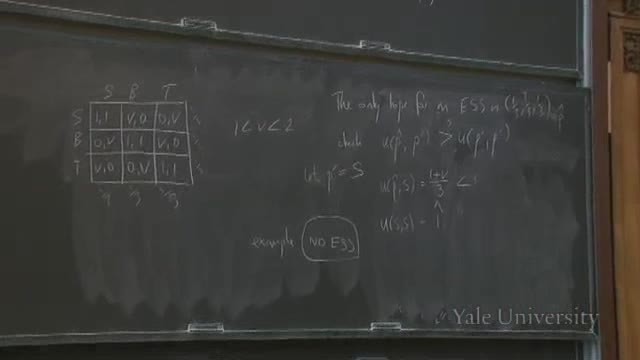 S B T
S 1,1 V,0 0,V 1/3
B 0,V 1,1 V,0 1/3
T V,0 0,V 1,1 1/3
1/3 1/3 1/3
1 < V < 2
The only hope for an ESS is (1/3, 1/3, 1/3) = p̂
check u(p̂, p') > u(p', p')
let p' = S
u(p̂, S) = 1+V/3 <
u(S,S) = 1
example NO ESS
Yale University